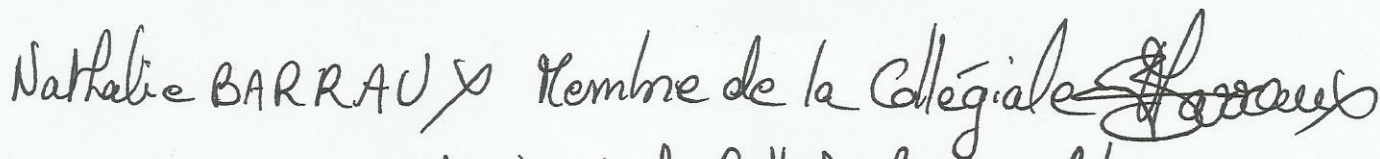 Nathalie BARRAUX Membre de la Collégiale Barraux